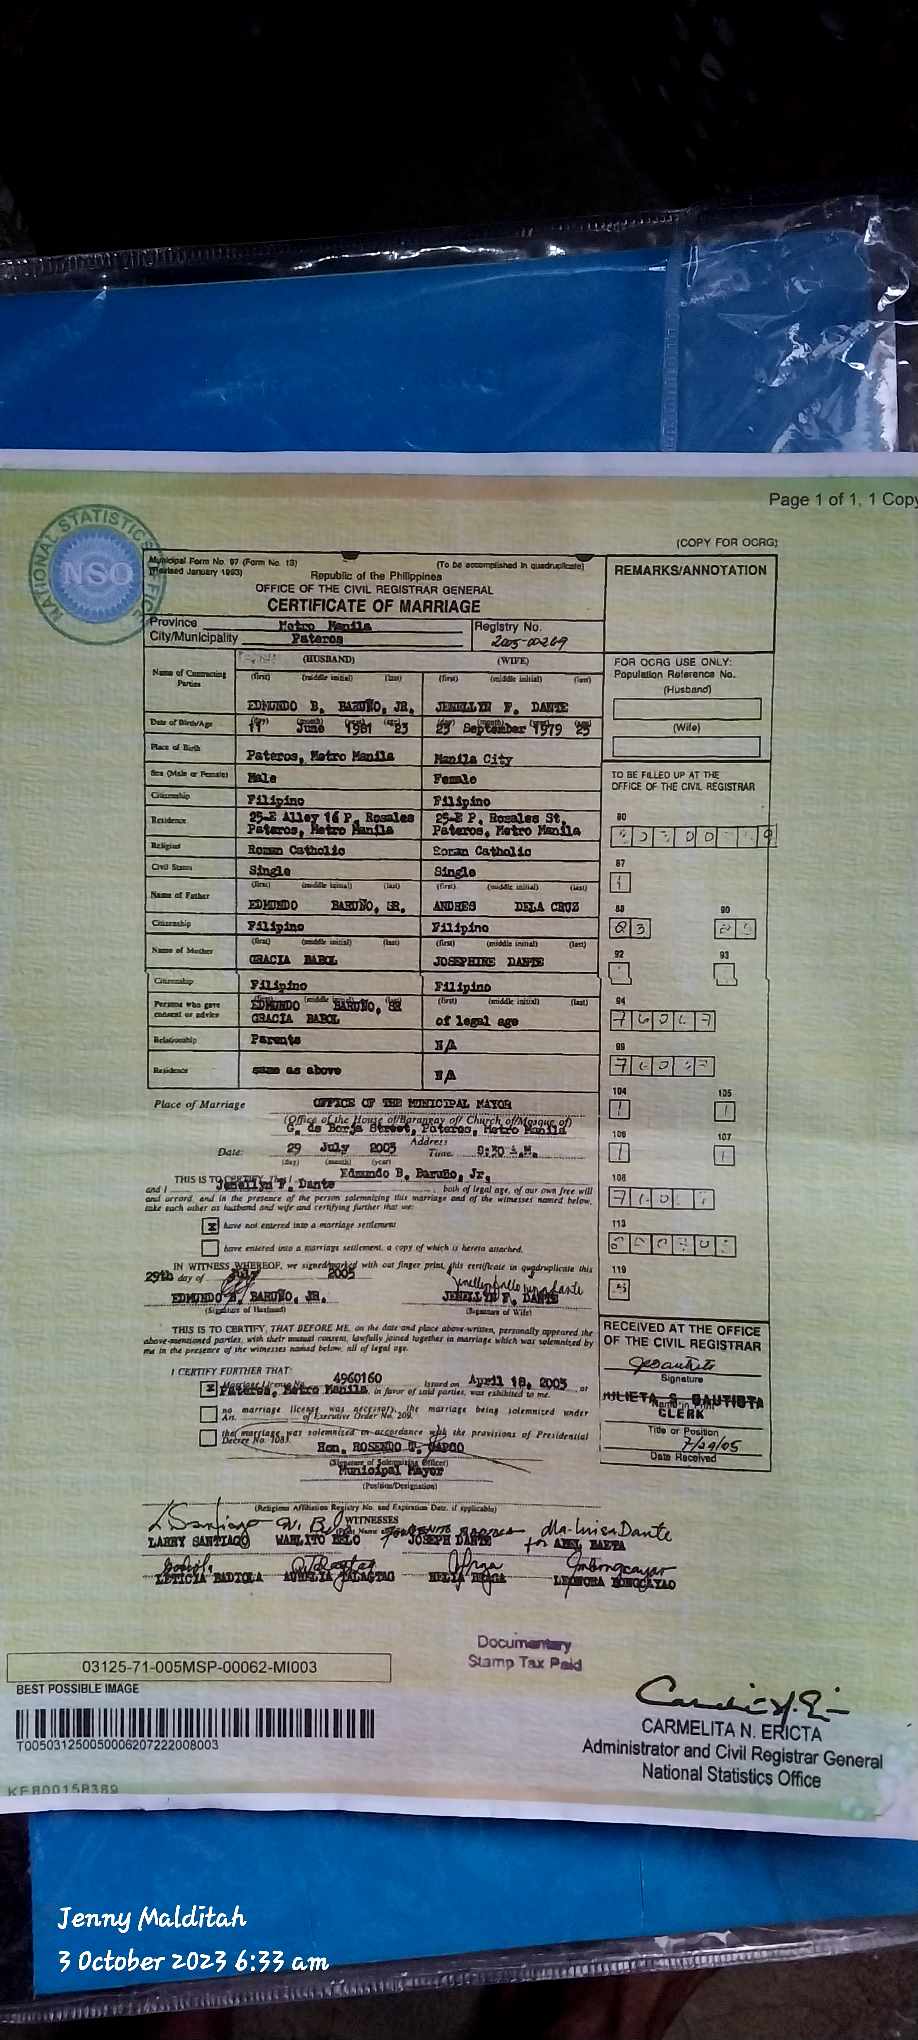 Page 1 of 1, 1 Copy
(COPY FOR OCRG)
NATIONAL STATISTICS OFFICE
NSO
Municipal Form No. 97 (Form No. 13)
(Revised January 1993)
(To be accomplished in quadruplicate)
Republic of the Philippines
OFFICE OF THE CIVIL REGISTRAR GENERAL
CERTIFICATE OF MARRIAGE
REMARKS/ANNOTATION
Province Metro Manila
City/Municipality Pateros
Registry No.
2005-00269
(HUSBAND) (WIFE)
Name of Contracting Parties
(first) (middle initial) (last) (first) (middle initial) (last)
EDMUNDO B. BARUÑO, JR. JENELLYN F. DANTE
Date of Birth/Age
(day) (month) (year) (age) (day) (month) (year) (age)
11 June 1981 23 23 September 1979 25
Place of Birth Pateros, Metro Manila Manila City
Sex (Male or Female) Male Female
Citizenship Filipino Filipino
Residence 25-E Alley 16 P. Rosales Pateros, Metro Manila 25-E P. Rosales St. Pateros, Metro Manila
Religion Roman Catholic Roman Catholic
Civil Status Single Single
(first) (middle initial) (last) (first) (middle initial) (last)
Name of Father EDMUNDO BARUÑO, SR. ANDRES DELA CRUZ
Citizenship Filipino Filipino
(first) (middle initial) (last) (first) (middle initial) (last)
Name of Mother GRACIA BABOL JOSEPHINE DANTE
Citizenship Filipino Filipino
Persons who gave consent or advice
(first) (middle initial) (last) (first) (middle initial) (last)
EDMUNDO BARUÑO, SR
GRACIA BABOL of legal age
Relationship Parents N/A
Residence same as above N/A
FOR OCRG USE ONLY:
Population Reference No.
(Husband)
(Wife)
TO BE FILLED UP AT THE
OFFICE OF THE CIVIL REGISTRAR
80
87
1
88 90
92 93
94
99
104 105
1 1
106 107
1 1
108
113
119
Place of Marriage OFFICE OF THE MUNICIPAL MAYOR
(Office of the House of/Barangay of/ Church of/Mosque of)
G. de Borja Street, Pateros, Metro Manila
Address
Date: 29 July 2005 Time: 9:30 A.M.
(day) (month) (year)
THIS IS TO CERTIFY, That I Edmundo B. Baruño, Jr.
and I Jenellyn F. Dante, both of legal age, of our own free will
and accord, and in the presence of the person solemnizing this marriage and of the witnesses named below,
take each other as husband and wife and certifying further that we:
x have not entered into a marriage settlement
have entered into a marriage settlement, a copy of which is hereto attached.
IN WITNESS WHEREOF, we signed/marked with our finger print, this certificate in quadruplicate this
29th day of July 2005
EDMUNDO B. BARUÑO, JR. JENELLYN F. DANTE
(Signature of Husband) (Signature of Wife)
THIS IS TO CERTIFY, THAT BEFORE ME, on the date and place above-written, personally appeared the
above-mentioned parties, with their mutual consent, lawfully joined together in marriage which was solemnized by
me in the presence of the witnesses named below, all of legal age.
I CERTIFY FURTHER THAT:
x Marriage License No. 4960160 issued on April 18, 2005, at
Pateros, Metro Manila, in favor of said parties, was exhibited to me.
no marriage license was necessary, the marriage being solemnized under
Art. of Executive Order No. 209.
the marriage was solemnized in accordance with the provisions of Presidential
Decree No. 1083.
Hon. ROSENDO T. CAPCO
(Signature of Solemnizing Officer)
Municipal Mayor
(Position/Designation)
(Religious Affiliation Registry No. and Expiration Date, if applicable)
RECEIVED AT THE OFFICE
OF THE CIVIL REGISTRAR
Signature
JULIETA S. BAUTISTA
Name in Print
CLERK
Title or Position
7/29/05
Date Received
WITNESSES
L Santiago Ma. Luisa Dante
LARRY SANTIAGO WARLITO BELO JOSEPH DANTE for ABEL BAETA
LETICIA BADIOLA AURELIA TALAGTAG LEONORA BONGCAYAO
Documentary
Stamp Tax Paid
03125-71-005MSP-00062-MI003
BEST POSSIBLE IMAGE
T005031250050006207222008003
KE800158389
CARMELITA N. ERICTA
Administrator and Civil Registrar General
National Statistics Office
Jenny Malditah
3 October 2023 6:33 am